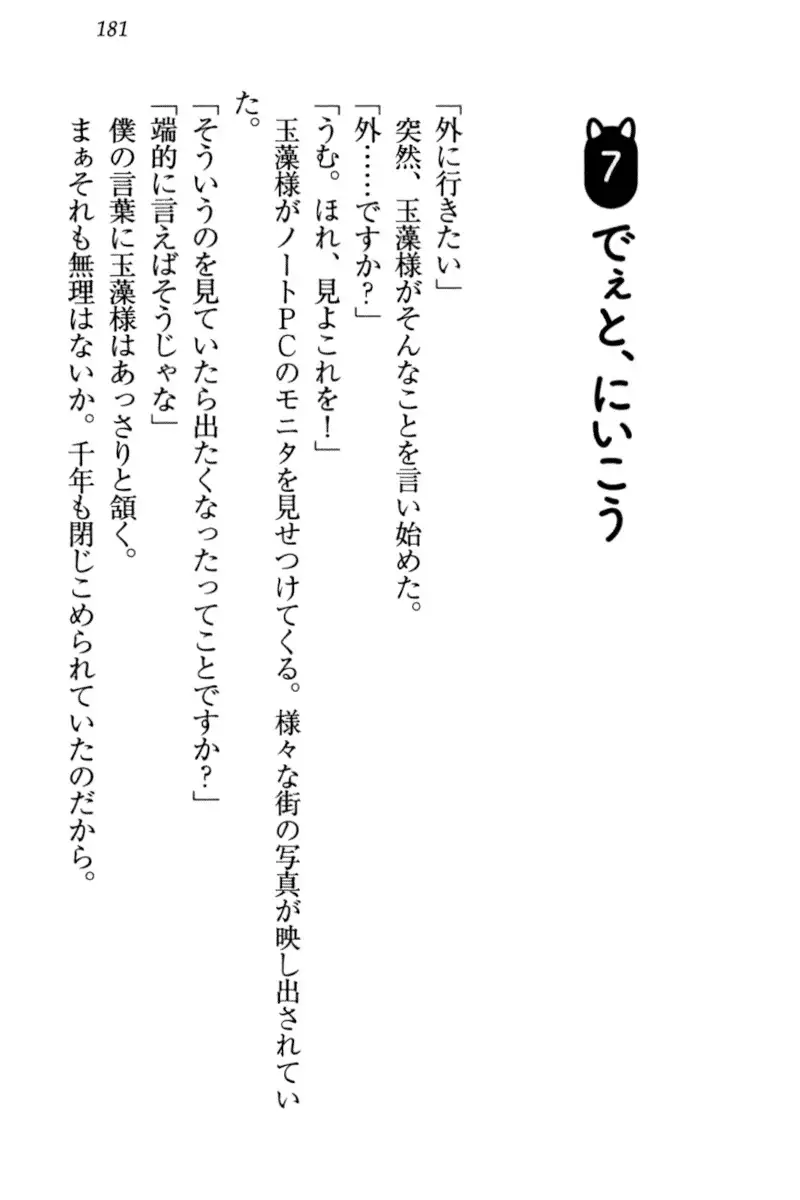 181
7
でぇと、にいこう
「外に行きたい」
突然、玉藻様がそんなことを言い始めた。
「外……ですか？」
「うむ。ほれ、見よこれを！」
玉藻様がノートPCのモニタを見せつけてくる。様々な街の写真が映し出されてい
た。
「そういうのを見ていたら出たくなったってことですか？」
「端的に言えばそうじゃな」
僕の言葉に玉藻様はあっさりと頷く。
まぁそれも無理はないか。千年も閉じこめられていたのだから。